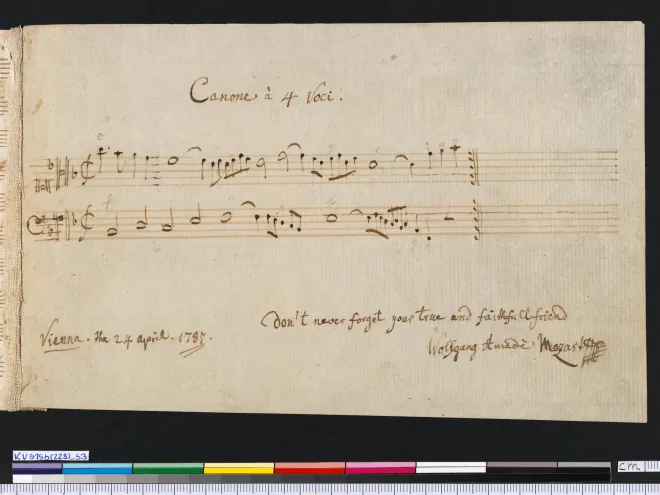 Canone à 4 Voci.
Don't never forget your true and faithfull friend
Vienna. the 24 April. 1787.
Wolfgang Amadè Mozart
cm